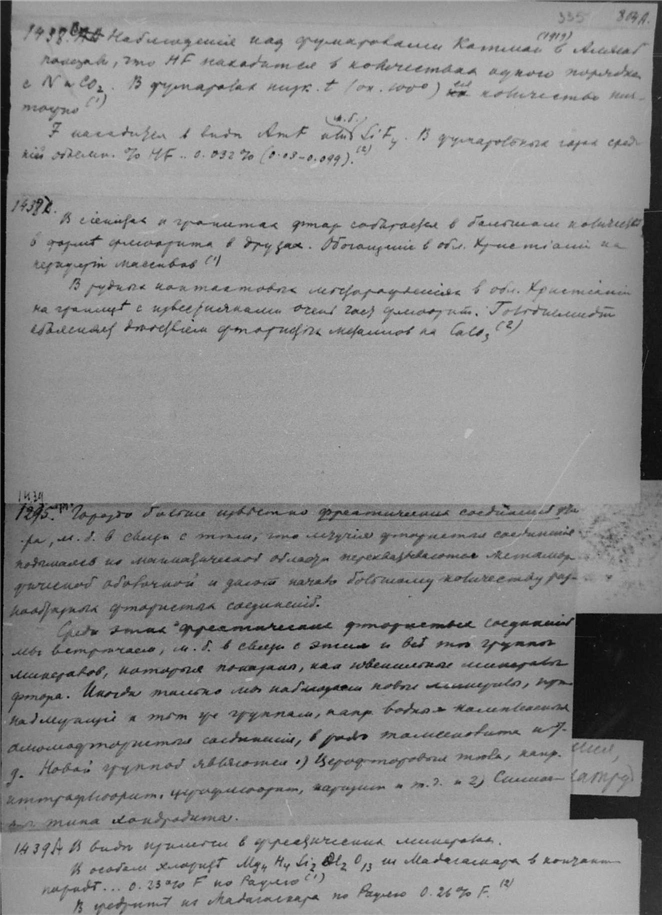 335 304А.
1438. Наблюденія над фумаровлами Катмаи (1919) в Аляске
показали, что HF находится в количествах одного порядка
с N и CO2. В фумаролах низк. t (ок. 1000) количество ничтожно (1)
F находится в виде AmF или (м.б.) SiF4. В фумарольных газах средній объемн. % HF .. 0.032% (0.03-0.099). (2)
1438
В сіенитах и гранитах фтор собирается в большом количестве
в форме флюорита в друзах. Обогащеніе в обл. Христіаніи на
периферіи массивов (1)
В рудных контактовых месторожденіях в обл. Христіаніи
на границѣ с известняками очень част флюорит. Гольдшмидт
объясняет дѣйствіем фтористых металлов на CaCO3 (2)
1439
1295. Гораздо больше известно фреатических соединеній фтора, м.б. в связи с тем, что летучія фтористыя соединенія
поднимаясь из магматической области перехватываются метаморфической оболочкой и дают начало большому количеству разнообразных фтористых соединеній.
Среди этих фреатических фтористых соединеній
мы встречаем, м.б. в связи с этим и все те группы
минералов, которые показаны, как ювенильные минералы
фтора. Иногда только мы наблюдаем новые минералы, принадлежащіе к тем же группам, напр. водныя
алюмофтористыя соединенія, в родѣ томсенолита и т.
д. Новой группой являются 1) Церофторовые тела, напр.
иттрофлюорит, церофлюорит, паризит и т.д. и 2) Силикаты типа хондродита.
1439 А В виде примеси в фреатических минералах.
В особом хлорите Mg4 H4 Si2 Al2 O13 из Мадагаскара
... 0.23% F по Раулю (1)
В из Мадагаскара по Раулю 0.26% F. (2)